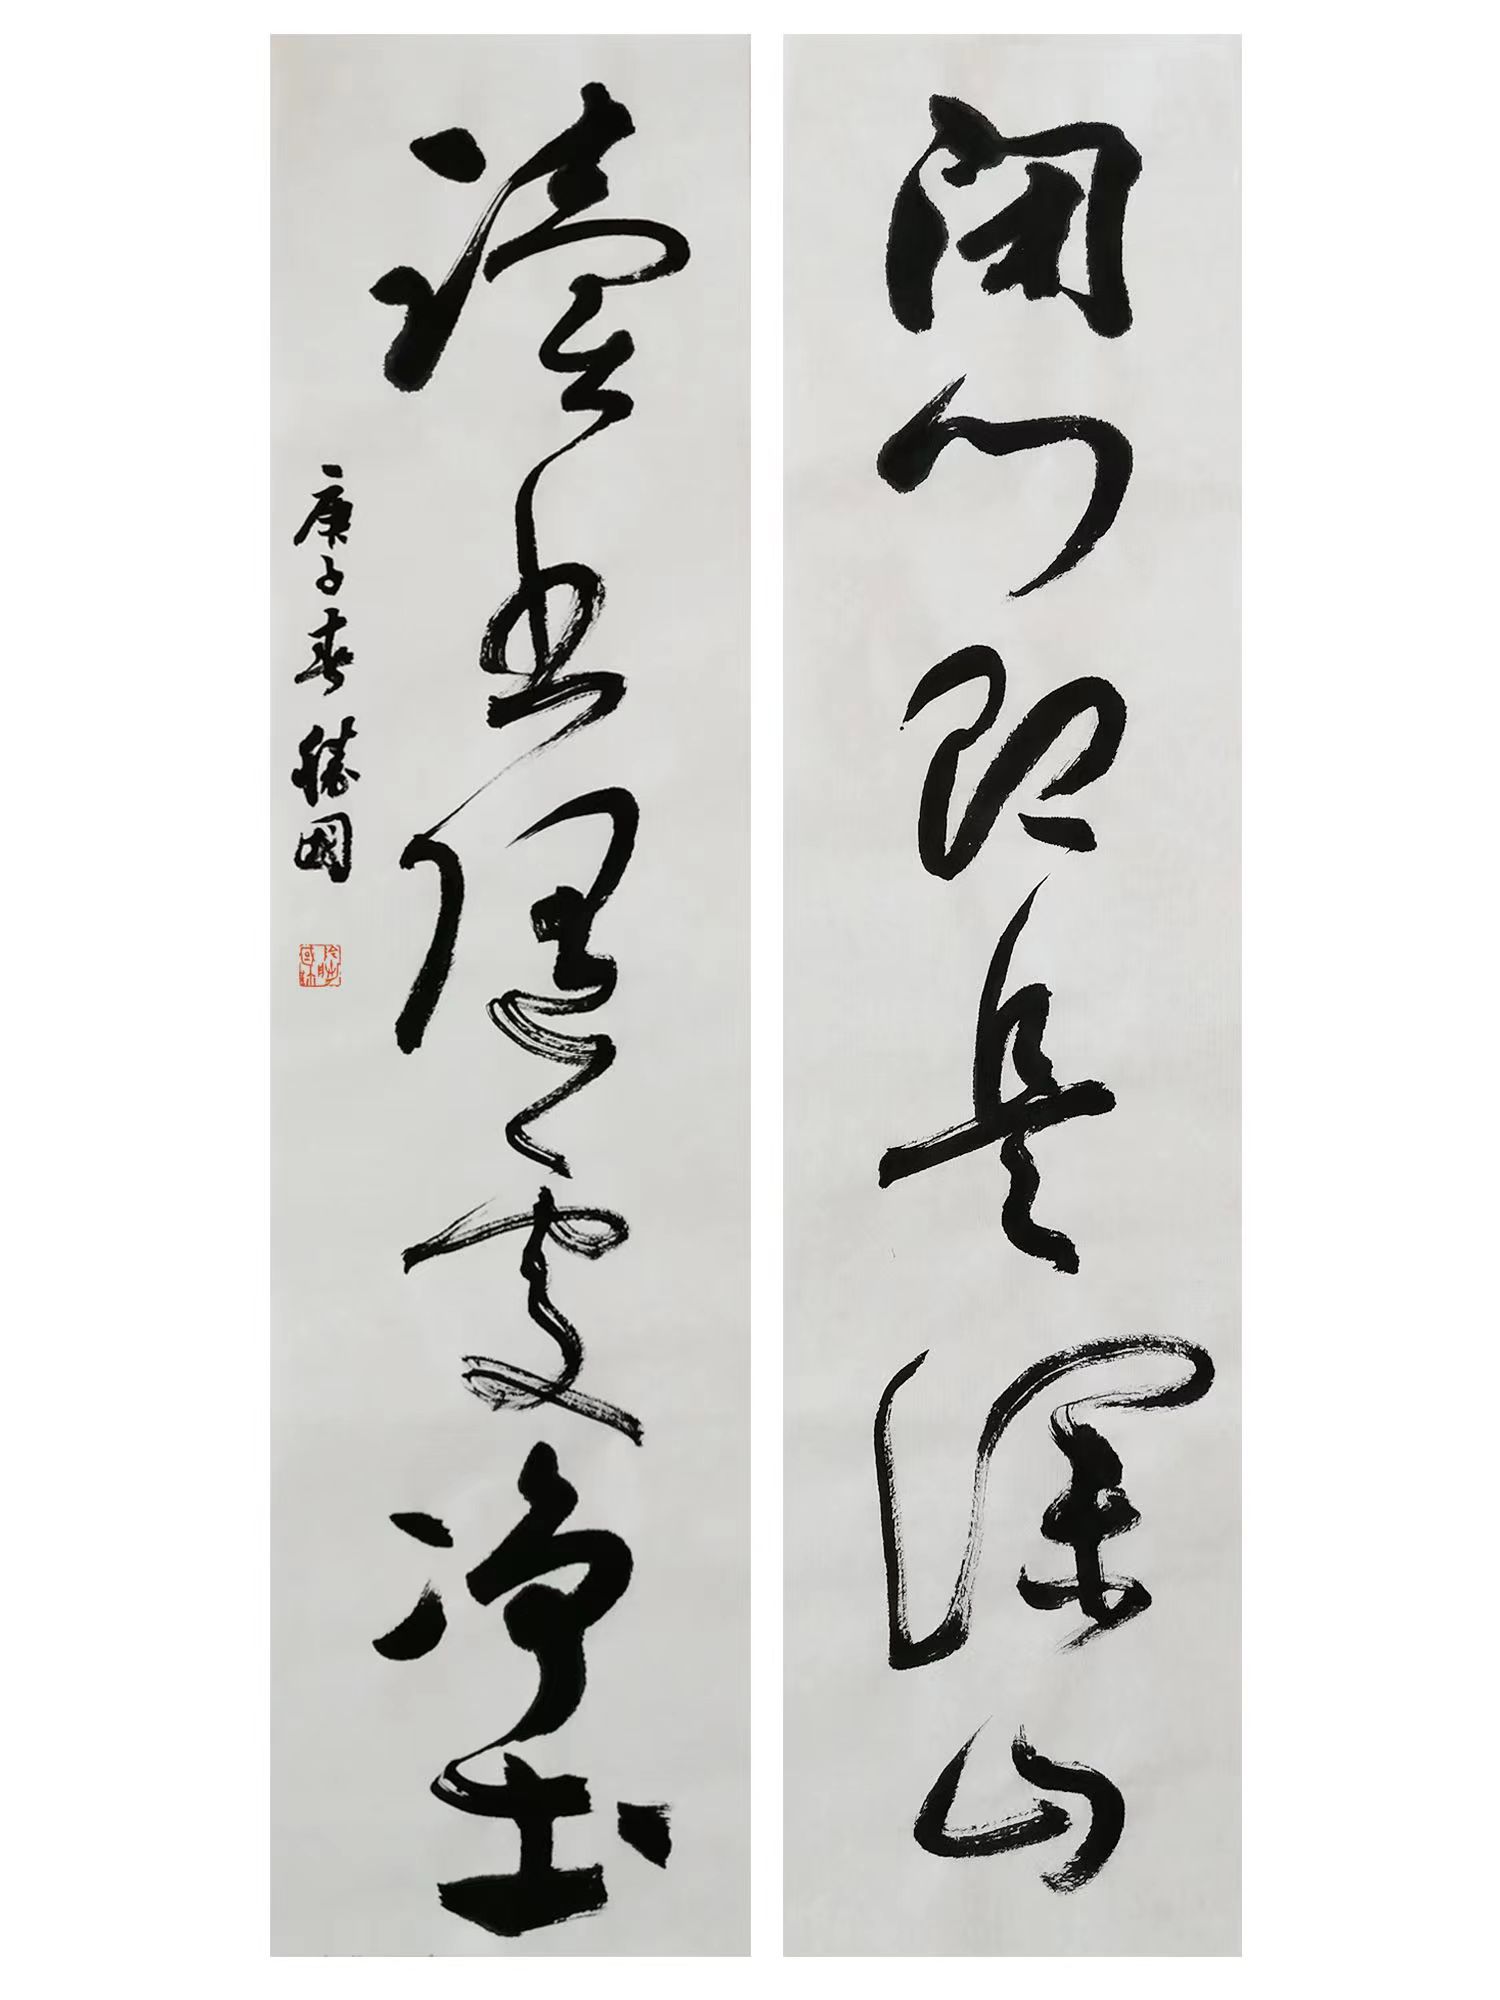 闭门即是深山
读书随处净土
庚子春 胜国